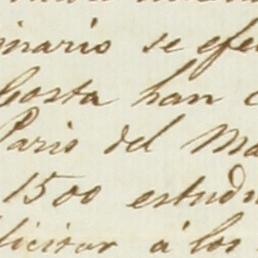 inario se efe
Costa han c
Paris del Ma
1500 estudi
licitar á los